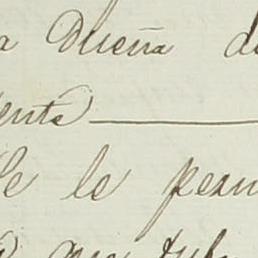 a Dueña d
ente
Se le perm
que